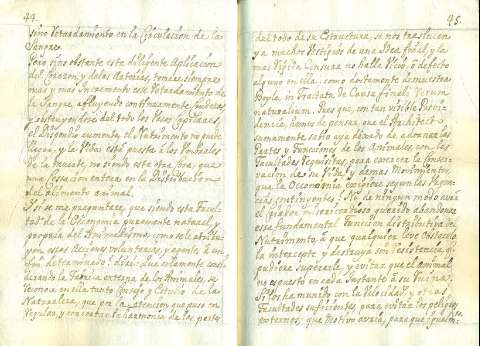 44.
sino Retardamiento en la Circulacion de la
Sangre.
Pero no obstante esta diligente Aplicacion
del Corazon, y de las Arterias, toma siempre
mas y mas Incremento este Retardamiento de
la Sangre, afluyendo continuamente,
y obstruyendose del todo los Vasos Capilares,
el Dispendio aumenta, el Nutrimento no puede
y la Vida está puesta à los Umbrales
de la Muerte, no siendo esta otra cosa, que
una Cessacion entera en la Distribucion
del Alimento animal.
Y si se me preguntare, que siendo esta Facul-
tad de la Oeconomia puramente natural, y
propria del Animalismo, como se le atribu-
yen essas Acciones voluntarias, y como à un
fin determinado? dirè, que solamente consi-
derando la Fabrica externa de los Animales, se
reconoce en ella tanto Consejo, y Estudio de la
Naturaleza, que por la atencion que puso en
Regular, y concertar la harmonia de las partes
45.
del todo de su Estructura, se nos traslucen
ya muchos Vestigios de una Idea final, y la
mas Rigida Censura no halla Vicio, ò defecto
alguno en ella, como doctamente demuestra
Boyle, in Tractatu de Causis finalib. Rerum
naturalium. Pues que, con tan visible Provi-
dencia, como se piensa, que el Architecto
sumamente sabio aya dexado de adornar las
Partes y Funciones de los Animales, con las
Facultades requisitas, para exercer la Conser-
vacion de su Vida, y demas Movimientos,
que la Oeconomia exigiesse segun las Urgen-
cias contingentes? No: de ningun modo avrà
el Criador misericordioso querido abandonar
esta fundamental Funcion distributiva del
Nutrimento, à que qualquier leve Obstaculo
la intercepte, y destruya sin resistencia, q.
pudiese superarla, y evitar que el animal
no es puesto en cada Instante à su Ruina?
Si los ha munido con la Velocidad, y otras
Facultades suficientes, para evitar los peligros
externos, que Motivo avria, para que igualm.te